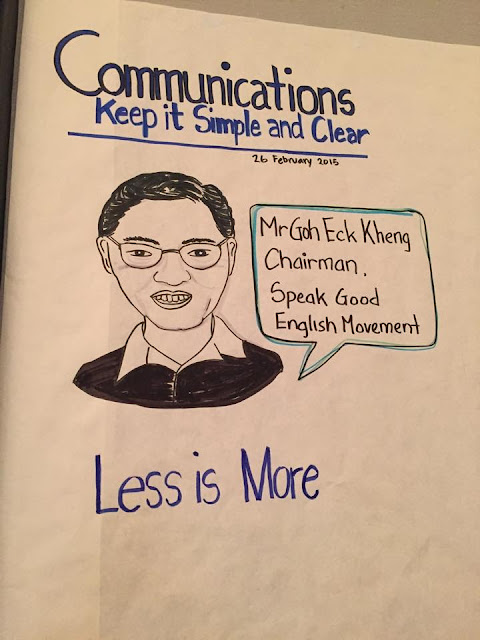 Communications
Keep it Simple and Clear
26 February 2015
Mr Goh Eck Kheng
Chairman,
Speak Good
English Movement
Less is More